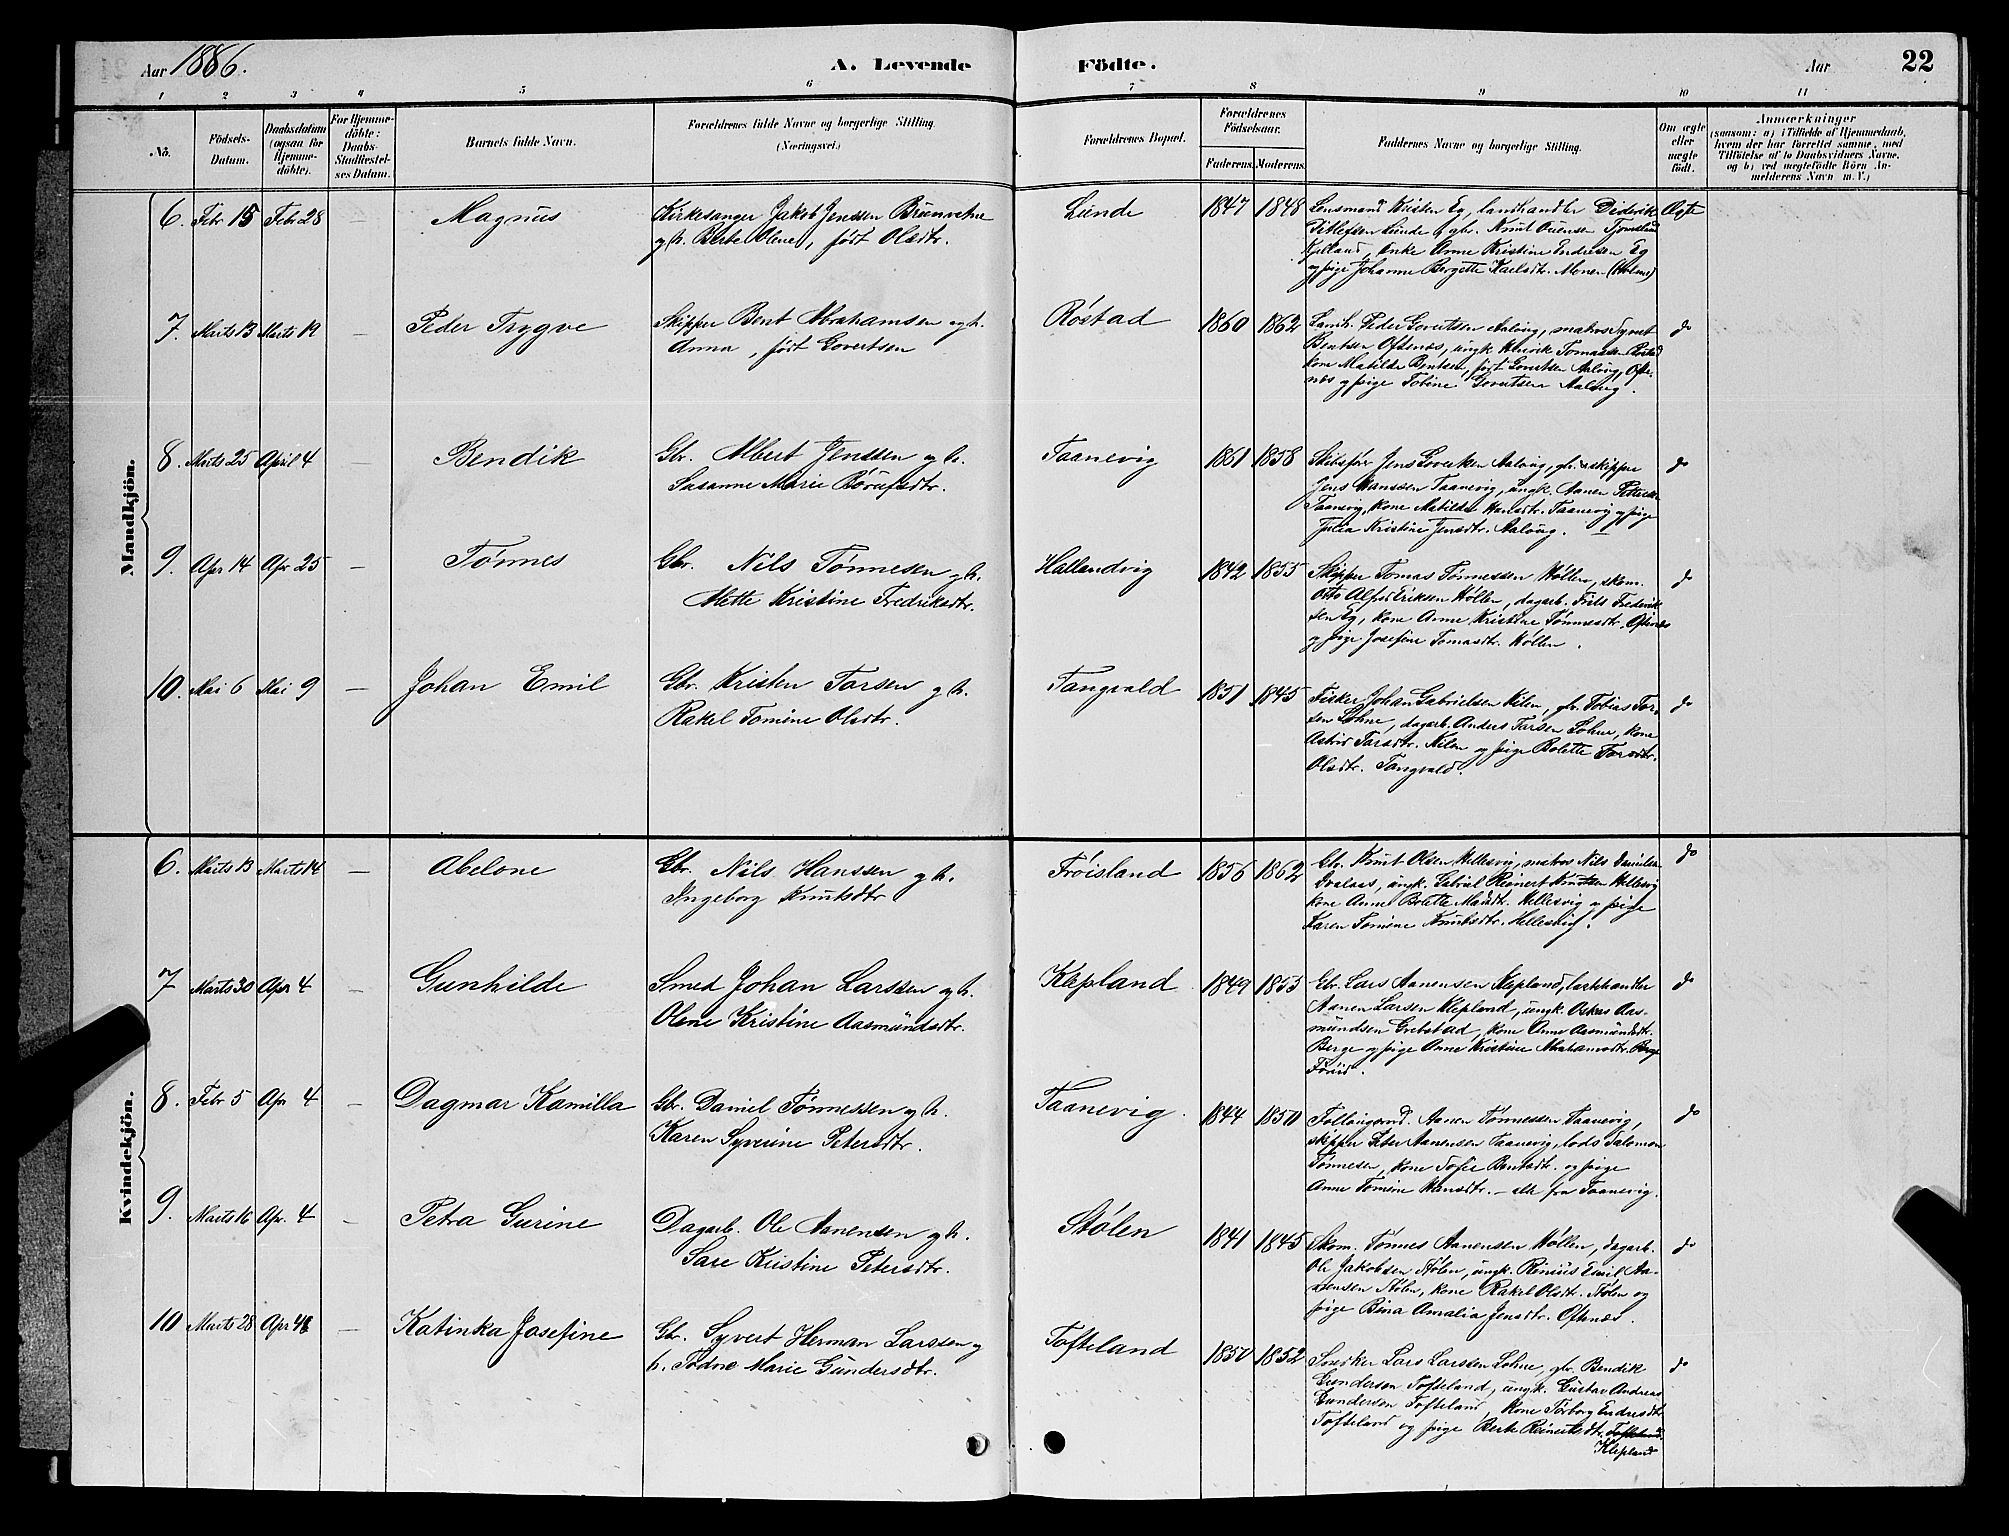 Aar 1886.
A. Levende Födte.
Aar
22
1 2 3 4 5 6 7 8 9 10 11
No.
Fødsels-Datum.
Daabsdatum (ogsaa for Hjemmedöbte).
For Hjemmedöbte: Daabs-Stadfæstelses Datum.
Barnets fulde Navn.
Forældrenes fulde Navne og borgerlige Stilling. (Næringsvei.)
Forældrenes Bopæl.
Forældrenes Födselsaar.
Faderens. Moderens.
Faddernes Navne og borgerlige Stilling.
Om ægte eller uægte født.
Anmærkninger
(saasom: a) i Tilfælde af Hjemmedaab, hvem der har forrettet samme, med Tilføielse af to Daabsvidners Navne, og b) ved uægtefödte Börn Anmelderens Navn m. V.)
Mandkjön.
6. Febr 15 Febr 28 — Magnus
Kirkesanger Jakob Jenssen Brunvatne
og h. Berte Olene, født Olsdtr.
Lunde 1847 1848
Lensmand Kristen Eg, landhandler Diderik
Ditlefsen Lunde, gbr. Knut Ouensen Tjomsland
Kjelland, enke Anne Kristine Endresen Eg
og pige Johanne Bergette Karlsdtr. Monen (Holum)
Ægte
7. Marts 13 Marts 19 — Peder Trygve
Skipper Bent Abrahamsen og h.
Anna, født Govertsen
Róstad 1860 1862
Landh. Peder Govertsen Aalvig, matros Syvert
Bentsen Oftenæs, ungk. Henrik Tomassen Røstad
kone Matilde Bentsen, født Govertsen Aalvig, Ofte-
næs og pige Tobine Govertsen Aalvig.
do
8. Marts 25 April 4 — Bendik
Gbr. Albert Jenssen og h.
Susanne Marie Börufsdtr.
Taanevig 1861 1858
Skibsfører Jens Govertsen Aalvig, gbr. skipper
Jens Hanssen Taanevig, ungk. Aanen Petersen
Taanevig, kone Matilde Hansdtr. Taanevig og pige
Julia Kristine Jensdtr. Aalvig.
do
9. Apr 14 Apr 25 — Tónnes
Gbr. Nils Tönnesen og h.
Mette Kristine Fredriksdtr.
Hallandvig 1842 1855
Skipper Tomas Tönnessen Höllen, skom.
Otto Alfred Eriksen Höllen, dagarb. Frits Frederik-
sen Eg, kone Anne Kristine Tönnesdtr. Oftenæs
og pige Josefine Tomasdtr. Höllen.
do
10. Mai 6 Mai 9 — Johan Emil
Gbr. Kristen Tarsen og h.
Rakel Tomine Olsdtr.
Tangvald 1851 1845
Fisker Johan Gabrielsen Kilen, gbr. Tobias Tor-
sen Lohne, dagarb. Anders Tarsen Lohne, kone
Astrid Tarsdtr. Kilen og pige Bolette Tarsdtr.
Olsdtr. Tangvald.
do
Kvindekjön.
6. Marts 13 Marts 14 — Abelone
Gbr. Nils Hanssen og h.
Ingeborg Knutsdtr
Fróisland 1856 1862
Gbr. Knut Olsen Hellesvig, matros Nils Danielsen
Dvalaas, ungk. Gabriel Reinert Knutsen Hellesvig
kone Anne Bolette Hansdtr. Hellesvig og pige
Karen Tomine Knutsdtr. Hellesvig.
do
7 Marts 30 Apr 4 — Gunhilde
Smed Johan Larssen og h.
Olene Kristine Aasmundsdtr.
Klepland 1849 1853
Gbr. Lars Aanensen Klepland, lasthandler
Aanen Larsen Klepland, ungk. Oskar Aas-
mundsen Grebstad, kone Anne Aasmundsdtr.
Berge og pige Anne Kristine Abrahamsdtr. Berge
do
8. Febr 5 Apr 4 — Dagmar Kamilla
Gbr. Daniel Tönnessen og h.
Karen Syverine Petersdtr.
Taanevig. 1844 1850
Aanen Tönnessen Taanevig,
skipper Peter Aanensen Taanevig, lods Salomon
Tönnesen, kone Sofie Bentsdtr. og pige
Anne Tomine Hansdtr. — alle fra Taanevig.
do
9. Marts 16 Apr. 4 — Petra Gurine
Dagarb. Ole Aanensen og h.
Sare Kristine Petersdtr.
Stólen 1841 1845
Skom. Tönnes Aanensen Höllen, dagarb.
Ole Jakobsen Stólen, ungk. Rinius Emil Aa-
nensen Stólen, kone Rakel Olsdtr. Stólen og
pige Bina Amalia Jensdtr. Oftenæs.
do
10 Marts 28 Apr 4 — Katinka Josefine
Gbr. Syvert Herman Larssen og
h. Todne Marie Gundersdtr.
Tofteland 1850 1852
Snedker Lars Larssen Lohne, gbr. Bendik
Gundersen Tofteland, ungk. Gustav Andreas
Gundersen Tofteland, kone Torborg Endresdtr.
Tofteland og pige Berte Reinertsdtr. Tofteland
Klepland
do